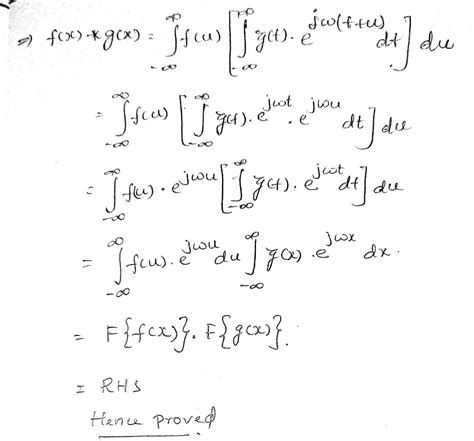 ⇒ f(x) * g(x) = ∫_{-∞}^{∞} f(u) [ ∫_{-∞}^{∞} g(t). e^{jω(t+u)} dt ] du
= ∫_{-∞}^{∞} f(u) [ ∫_{-∞}^{∞} g(t). e^{jωt} . e^{jωu} dt ] du
= ∫_{-∞}^{∞} f(u). e^{jωu} [ ∫_{-∞}^{∞} g(t). e^{jωt} dt ] du
= ∫_{-∞}^{∞} f(u). e^{jωu} du ∫_{-∞}^{∞} g(x). e^{jωx} dx.
= F{f(x)}. F{g(x)}.
= RHS
Hence proved